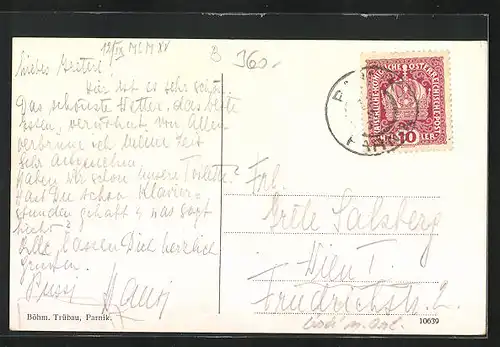 12/IX MCMXV
360.-
Liebes Greterl!
Hier ist es sehr schön.
Das schönste Wetter, das beste
Essen, verwöhnt von Allen
verbringe ich meine Zeit
sehr angenehm.
Haben wir schon unsere Toilette?
Hast Du schon Klavier-
stunden gehabt & was sagt
Alle lassen Dich herzlich
Grüssen.
Hansi
Böhm. Trübau, Parnik.
KAISERLICHE KÖNIGLICHE ÖSTERREICHISCHE POST
10 HELLER 10
Frl.
Grete Salzberg
Wien I.
Friedrichstr. 2.
10639